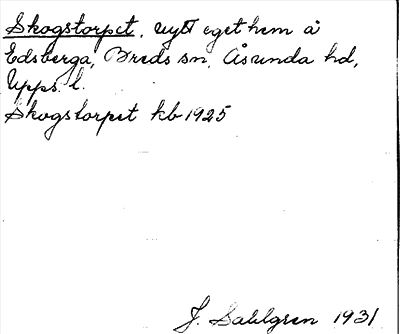 Skogstorpet, nytt eget hem å
Edsberga, Breds sn, Åsunda hd,
Upps. l.
Skogstorpet kb 1925
J. Sahlgren 1931